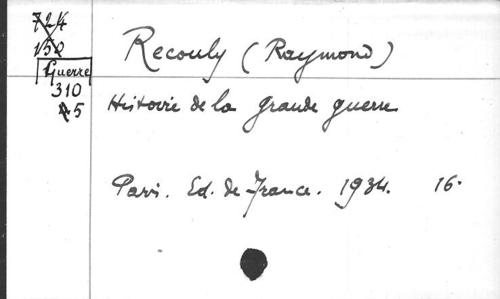 724
150
Guerre
310
45
Recouly (Raymond)
Histoire de la grande guerre
Paris. Ed. de France. 1934. 16.